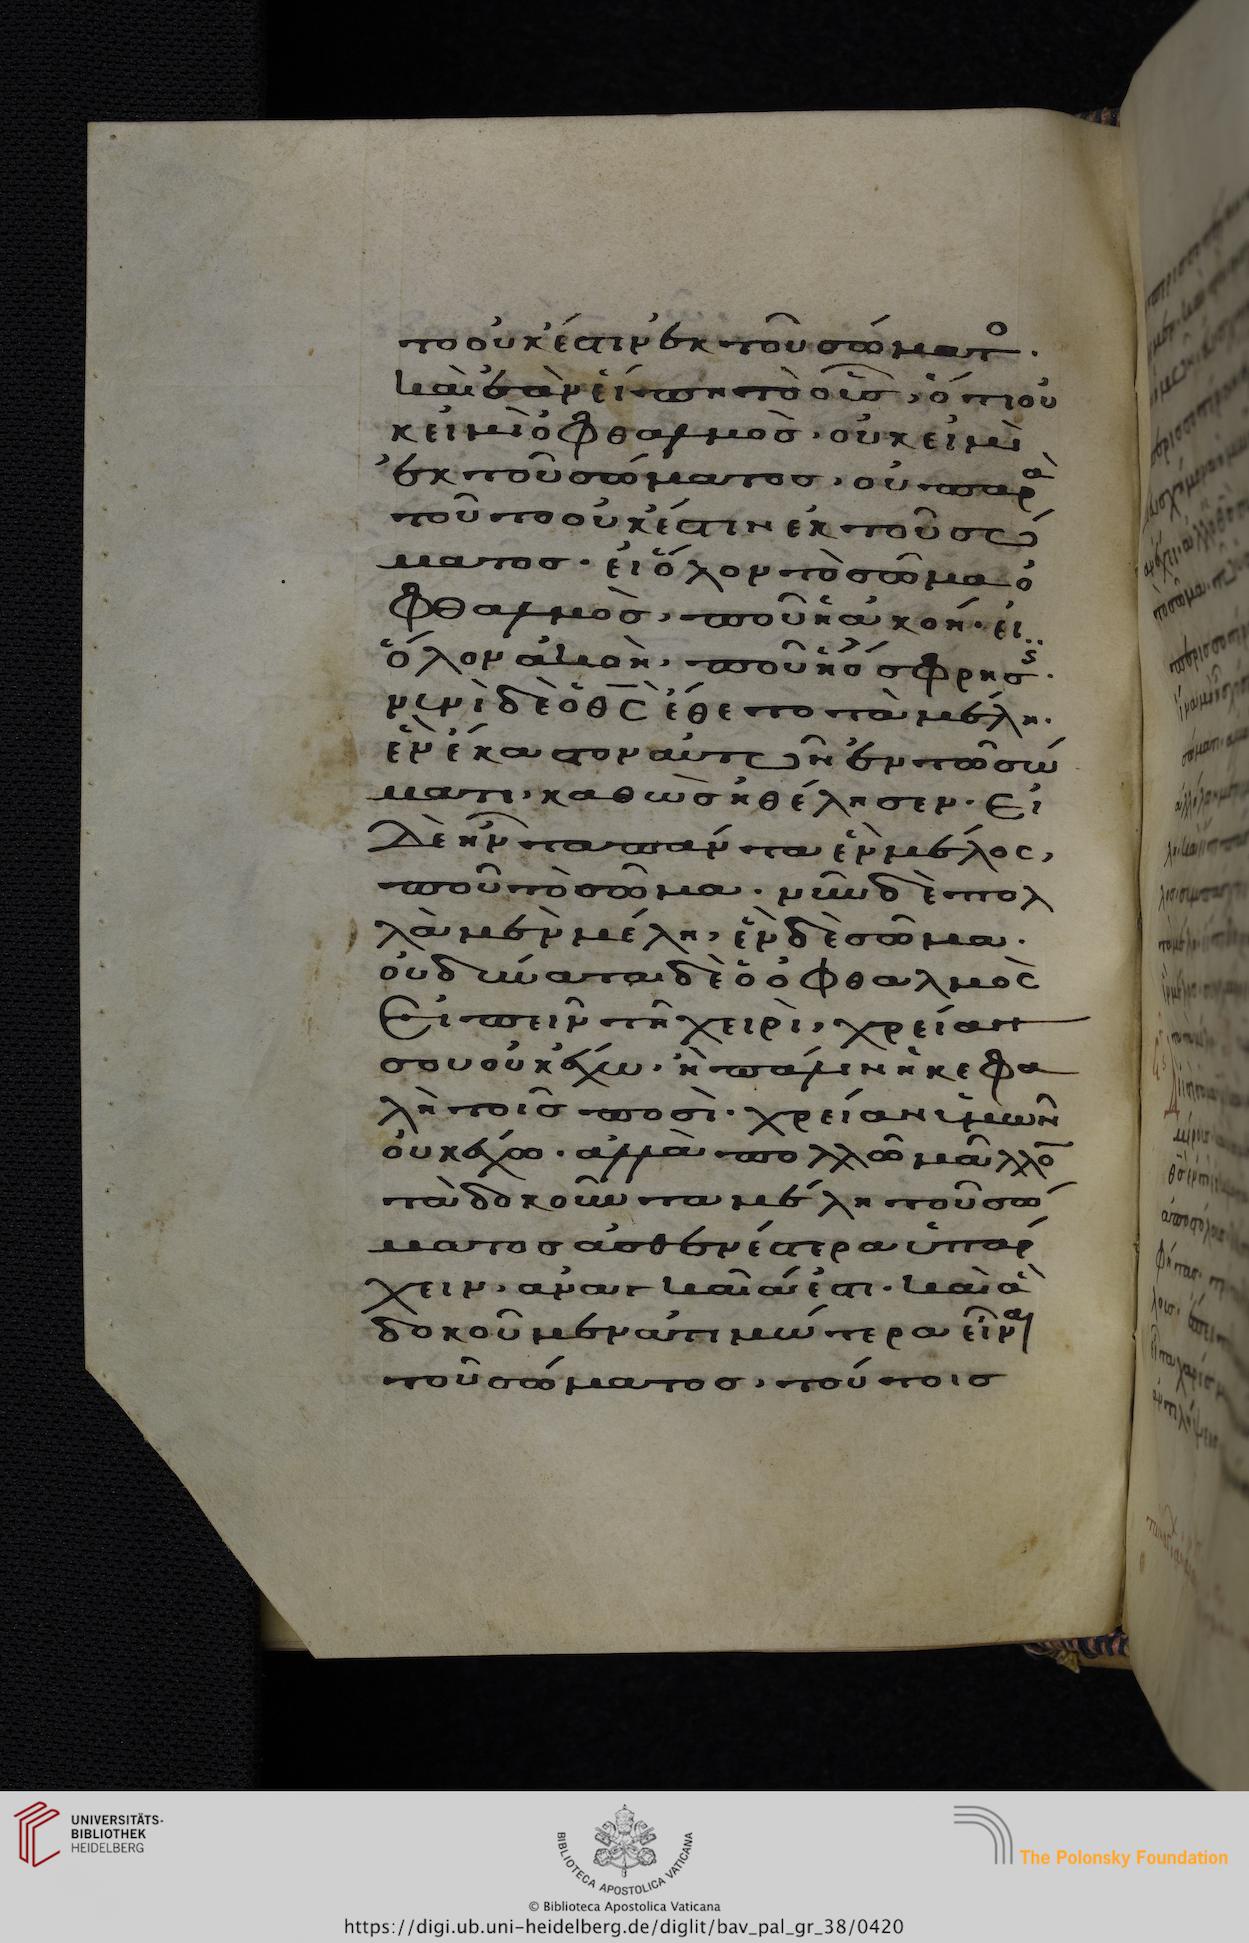 το οὐκ ἔστιν ἐκ τοῦ σώματο.
καὶ ἐὰν εἴπη τὸ οὖς, ὅτι οὐ
κ εἰμὶ ὀφθαλμὸσ· οὐκ εἰμὶ
ἐκ τοῦ σώματοσ, οὐ παρὰ
τοῦτο οὐκ έστιν ἐκ τοῦ σώ
ματοσ· εἰ ὅλον τὸ σῶμα ὀ
φθαλμὸσ, ποῦ ἡ ἀκοή· εἰ
ὅλον ἀκοὴ, ποῦ ἡ ὄσφρησ·
νυνὶ δὲ ὁ θ̅ς̅ ἔθετο τὰ μέλη·
ἓν έκαστον αὐτῶν ἐν τῶ σώ
ματι, καθὼσ ἠθέλησεν· Εἰ
δὲ ἦν τα πάντα ἓν μέλος,
ποῦ τὸ σῶμα· νῦν δὲ πολ
λὰ μὲν μέλη, ἓν δὲ σῶμα·
οὐ δύναται δὲ ὁ ὀφθαλμὸς
Εἰπεῖν τῆ χειρὶ, χρείαν
σου οὐκ ἔχω· ἢ πάλιν ἡ κεφα
λὴ τοῖσ ποσὶ· χρείαν ὑμῶν
οὐκ ἔχω· ἀλλὰ πολλῶ μᾶλλο
τὰ δοκοῦντα μέλη τοῦ σώ
ματοσ ἀσθενέστερα ὑπάρ
χειν, ἀναγκαῖά ἐστι· καὶ ἃ
δοκοῦμεν ἀτιμώτερα εἶναι
τοῦ σώματοσ, τούτοισ
UNIVERSITÄTS-
BIBLIOTHEK
HEIDELBERG
BIBLIOTECA APOSTOLICA VATICANA
The Polonsky Foundation
© Biblioteca Apostolica Vaticana
https://digi.ub.uni-heidelberg.de/diglit/bav_pal_gr_38/0420